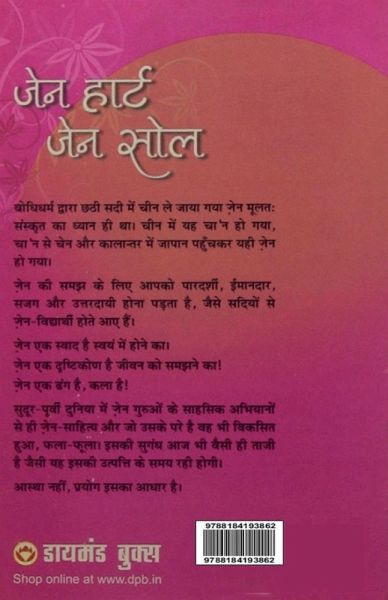 जेन हार्ट
जेन सोल
बोधिधर्म द्वारा छठी सदी में चीन ले जाया गया ज़ेन मूलतः
संस्कृत का ध्यान ही था। चीन में यह चा'न हो गया,
चा'न से चेन और कालान्तर में जापान पहुँचकर यही ज़ेन
हो गया।
ज़ेन की समझ के लिए आपको पारदर्शी, ईमानदार,
सजग और उत्तरदायी होना पड़ता है, जैसे सदियों से
ज़ेन-विद्यार्थी होते आए हैं।
ज़ेन एक स्वाद है स्वयं में होने का।
ज़ेन एक दृष्टिकोण है जीवन को समझने का!
ज़ेन एक ढंग है, कला है!
सुदूर-पूर्वी दुनिया में ज़ेन गुरुओं के साहसिक अभियानों
से ही ज़ेन-साहित्य और जो उसके परे है वह भी विकसित
हुआ, फला-फूला। इसकी सुगंध आज भी वैसी ही ताजी
है जैसी यह इसकी उत्पत्ति के समय रही होगी।
आस्था नहीं, प्रयोग इसका आधार है।
9788184193862
9788184193862
डायमंड बुक्स
Shop online at www.dpb.in